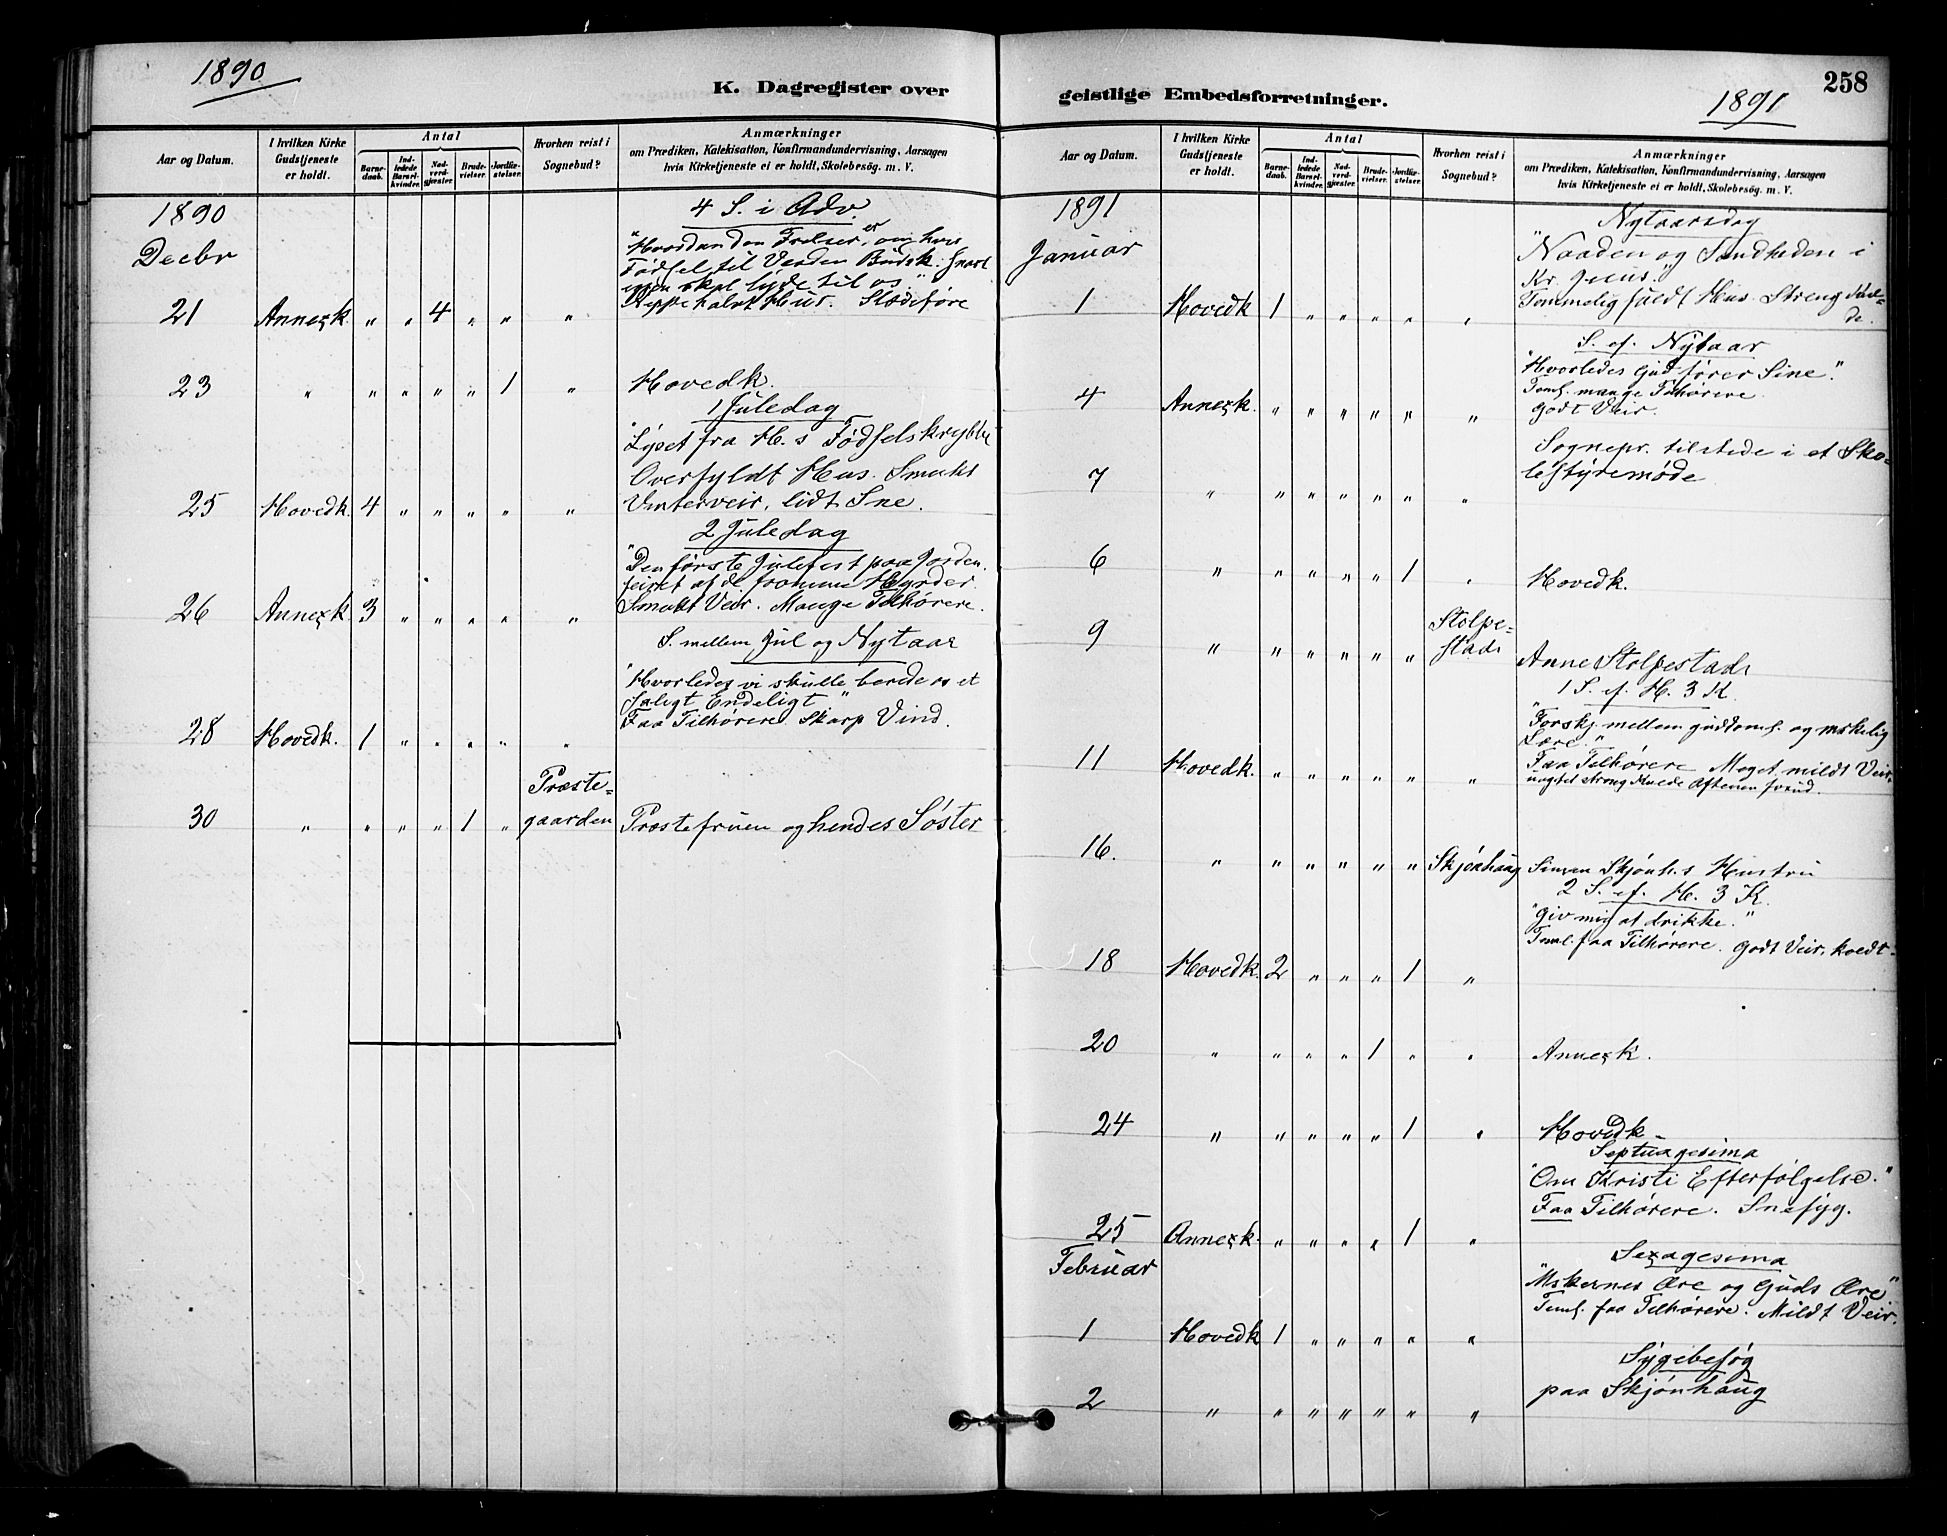 1890
K. Dagregister over
Aar og Datum.
I hvilken Kirke Gudstjeneste er holdt.
Antal
Barnedaab.
Indledede Barselkvinder.
Nadverdgjæster.
Brudevielser.
Jordfæstelser.
Hvorhen reist i Sognebud?
Anmærkninger
om Prædiken, Katekisation, Konfirmandundervisning, Aarsagen
hvis Kirketjeneste ei er holdt, Skolebesøg. m. V.
1890
Decbr
4 S. i Adv.
"Hvordan den Frelser er, om hvis
Fødsel til Verden Budsk. snart
igjen skal lyde til os"
21 Annexk. " " 4 " " " Neppe halvt Hus. Slædeføre
23 " " " " " 1 " Hovedk.
1 Juledag
"Lyset fra H.s Fødselskrybbe
Overfyldt Hus. Smukt
25 Hovedk. 4 " " " " " Vinterveir, lidt Sne.
2 Juledag
"Den første Julefest paa Jorden,
feiret af de fromme Hyrder
26 Annexk 3 " " " " " Smukt Veir. Mange Tilhørere.
S. mellem Jul og Nytaar
"Hvorledes vi skulle berede os et
saligt Endeligt"
28 Hovedk. 1 " " " " " Faa Tilhørere. Skarp Vind.
Præste-
30 " " " " 1 " gaarden Præstefruen og hendes Søster
258
geistlige Embedsforretninger.
1891
Aar og Datum.
I hvilken Kirke Gudstjeneste er holdt.
Antal
Barnedaab.
Indledede Barselkvinder.
Nadverdgjæster.
Brudevielser.
Jordfæstelser.
Hvorhen reist i Sognebud?
Anmærkninger
om Prædiken, Katekisation, Konfirmandundervisning, Aarsagen
hvis Kirketjeneste ei er holdt, Skolebesøg. m. V.
1891
Januar
Nytaarsdag
"Naaden og Sandheden i
Kr. Jesus."
1 Hovedk 1 " " " " " Temmelig fuldt Hus. Streng Kul-
de.
S. ef. Nytaar
"Hvorledes Gud fører Sine."
4 Annexk. " " " " " " Teml. mange Tilhørere.
Godt Veir.
Sognepr. tilstede i et Sko-
7 " " " " " " " lestyremøde
6 " " " " " 1 " Hovedk.
Stolpe-
9 " " " " " " stad Anne Stolpestad
1 S. ef. H. 3 K.
"Forskj. mellem guddoml. og mskelig
Lære."
11 Hovedk. " " " " " " Faa Tilhørere. Meget mildt Veir,
uagtet streng Kulde Aftenen forud.
16. " " " " " " Skjønhaug Simen Skjønh.s Hustru
2 S. ef. H. 3 K.
"Giv mig at drikke."
18 Hovedk. 2 " " " 1 " Teml. faa Tilhørere. Godt Veir, koldt.
20 " " " " 1 " " Annexk.
24 " " " " " 1 " Hovedk.
Septuagesima
"Om Kristi Efterfølgelse."
25 Annexk. " " " " 1 " Faa Tilhørere. Snefyg.
Februar
Sexagesima
"Mskernes Ære og Guds Ære"
1 Hovedk 1 " " " " " Teml. faa Tilhørere. Mildt Veir.
Sygebesøg
2 " " " " " " " paa Skjønhaug